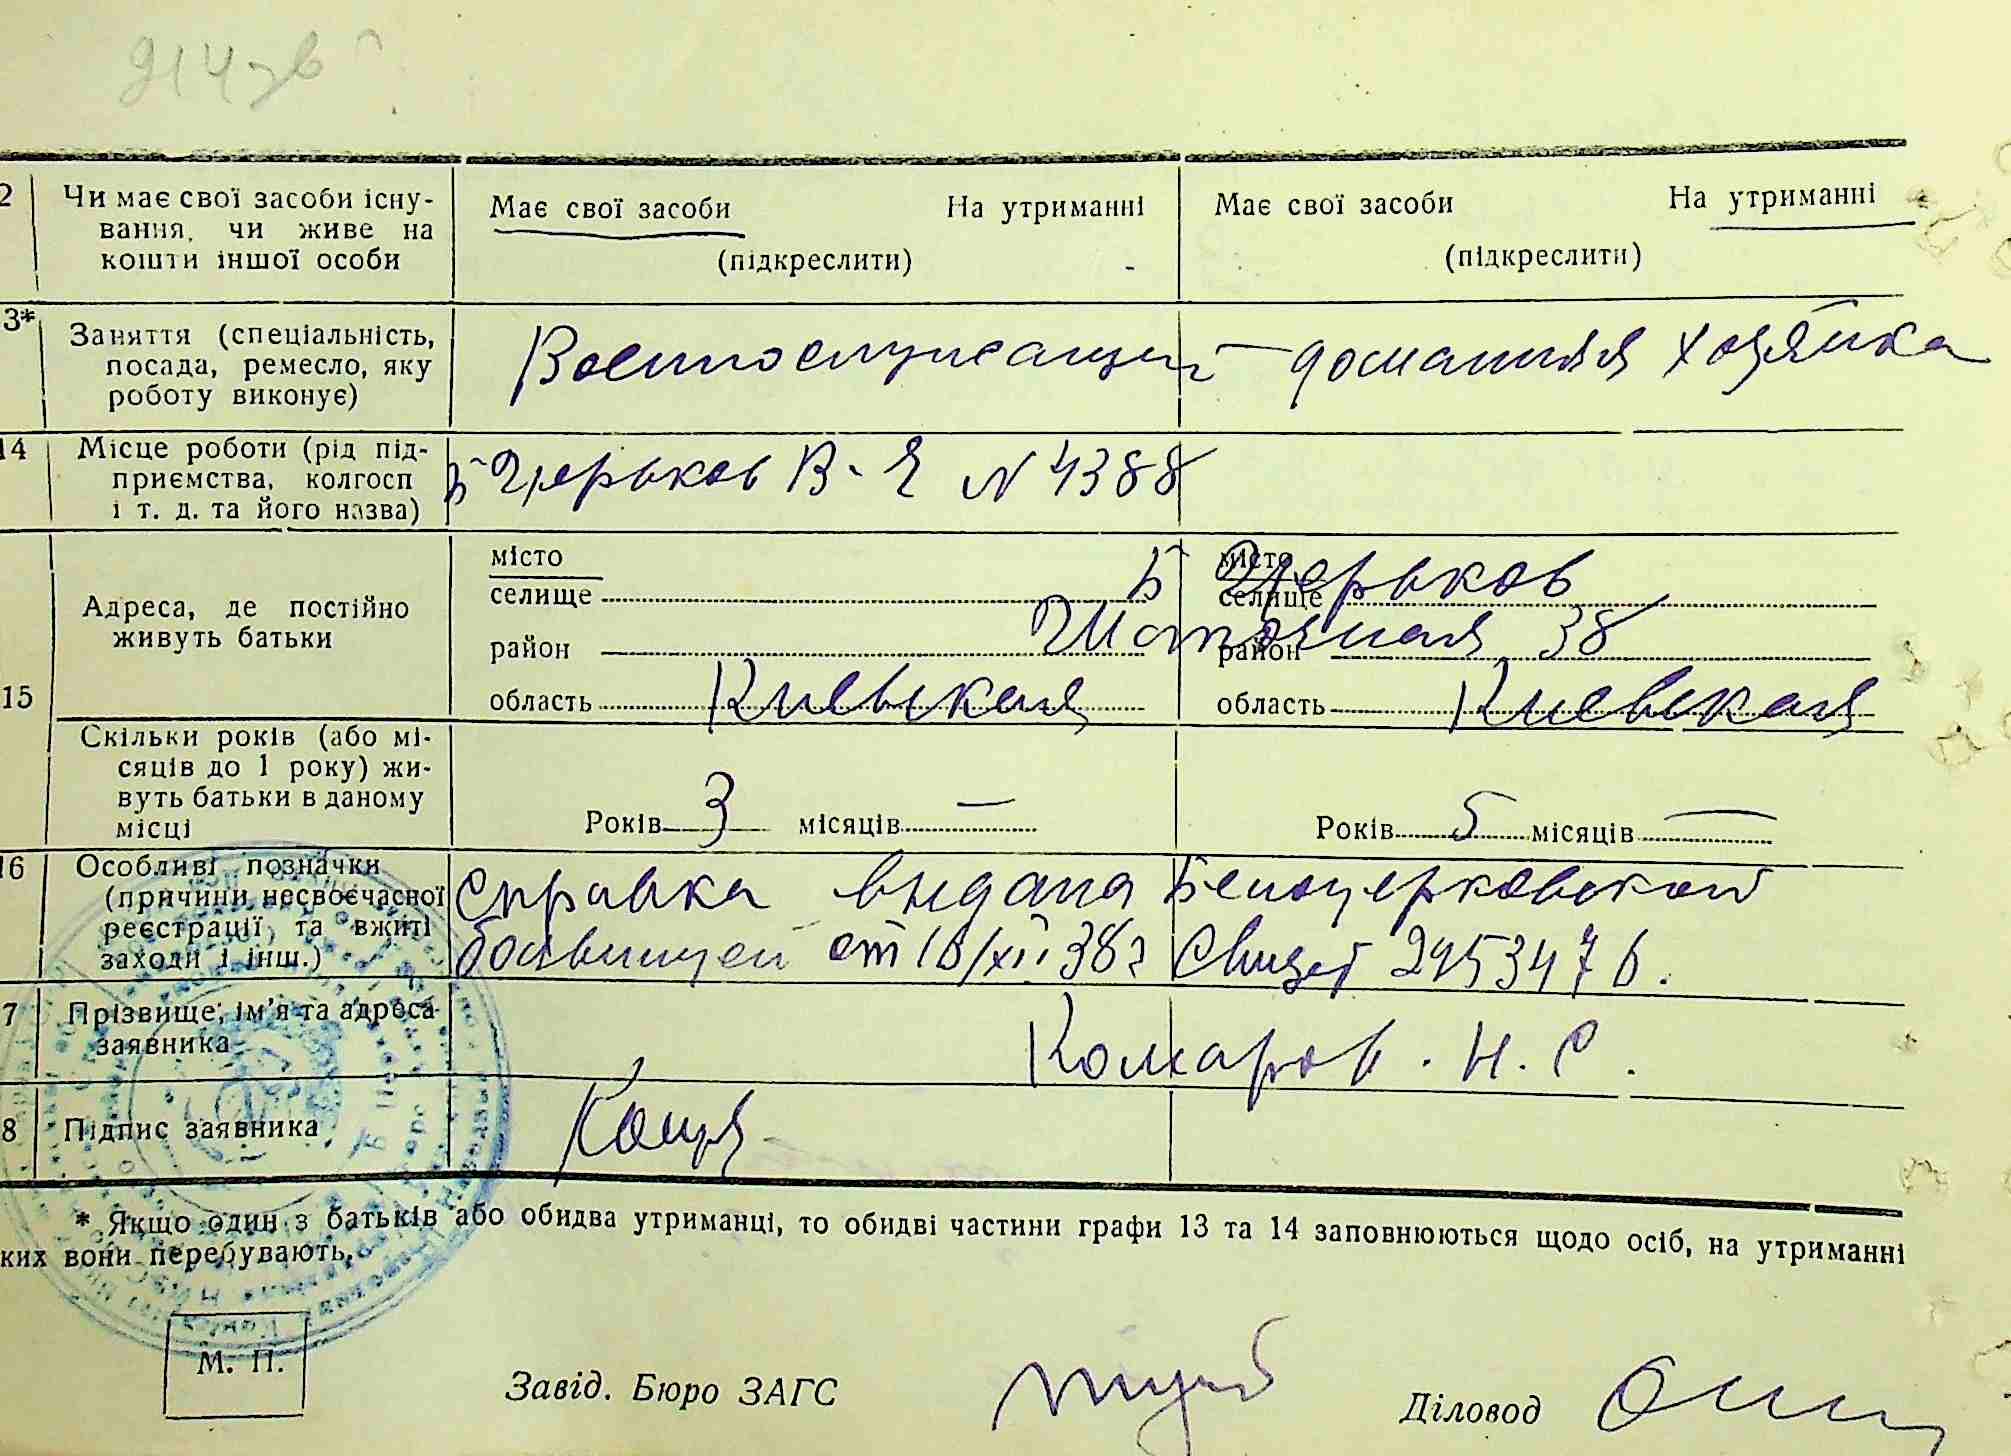 2 Чи має свої засоби існу- Має свої засоби На утриманні Має свої засоби На утриманні
вання, чи живе на
кошти іншої особи (підкреслити) (підкреслити)
3* Заняття (спеціальність, Военнослужащий домашняя хозяйка
посада, ремесло, яку
роботу виконує)
14 Місце роботи (рід під- Б-Церьков В-Ч N 4388
приємства, колгосп
і т. д. та його назва)
місто місто Б Церьков
селище селище
Адреса, де постійно
живуть батьки
район район 38
15 область Киевская область Киевская
Скільки років (або мі-
сяців до 1 року) жи-
вуть батьки в даному
місці Років 3 місяців — Років 5 місяців —
16 Особливі позначки
(причини несвоєчасної справка выдана Белоцерковской
реєстрації, та вжиті
заходи і інш.) больницей от 18/XII 38 г
7 Прізвище, ім'я та адреса
заявника Комаров. Н. С.
8 Підпис заявника
* Якщо один з батьків або обидва утриманці, то обидві частини графи 13 та 14 заповнюються щодо осіб, на утриманні
ких вони перебувають.
М. П.
Завід. Бюро ЗАГС Діловод